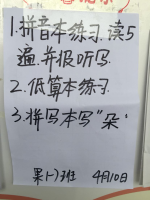 1.拼音本练习.读5
遍.并报听写.
2.低算本练习.
3.拼写本写“朵”
果(一)班 4月10日